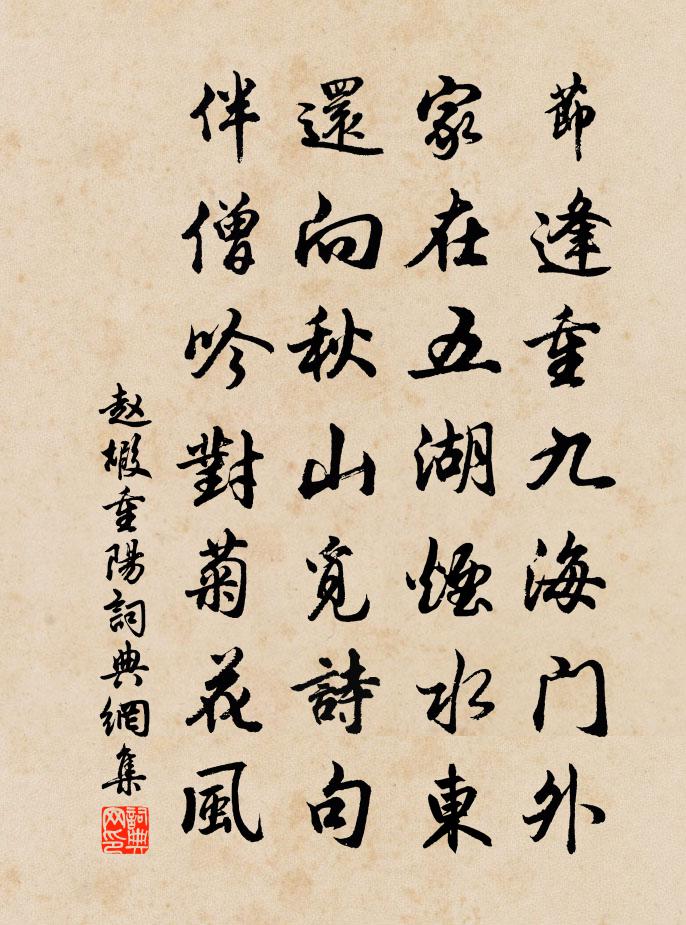 節逢重九海門外
家在五湖煙水東
還向秋山覓詩句
伴僧吟對菊花風
赵嘏重陽詞典網集
詞典网印